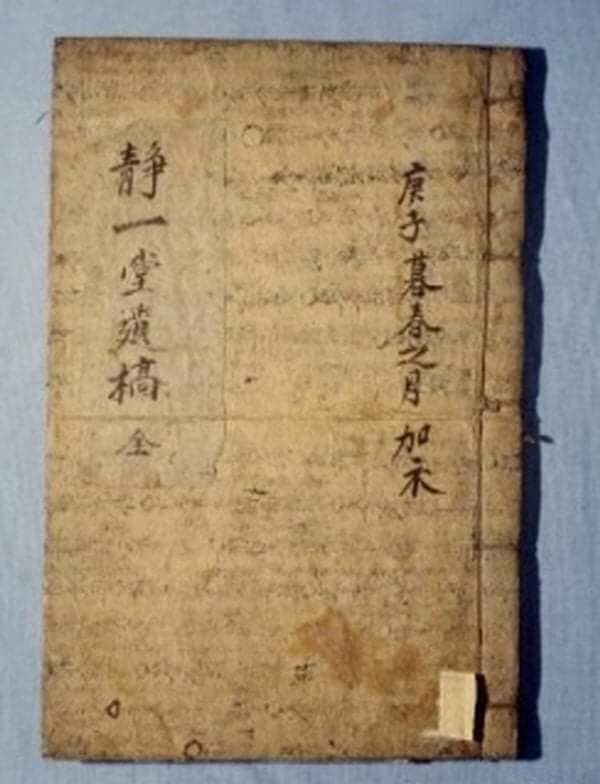 庚子暮春之月 加衣
静一堂遺稿 全